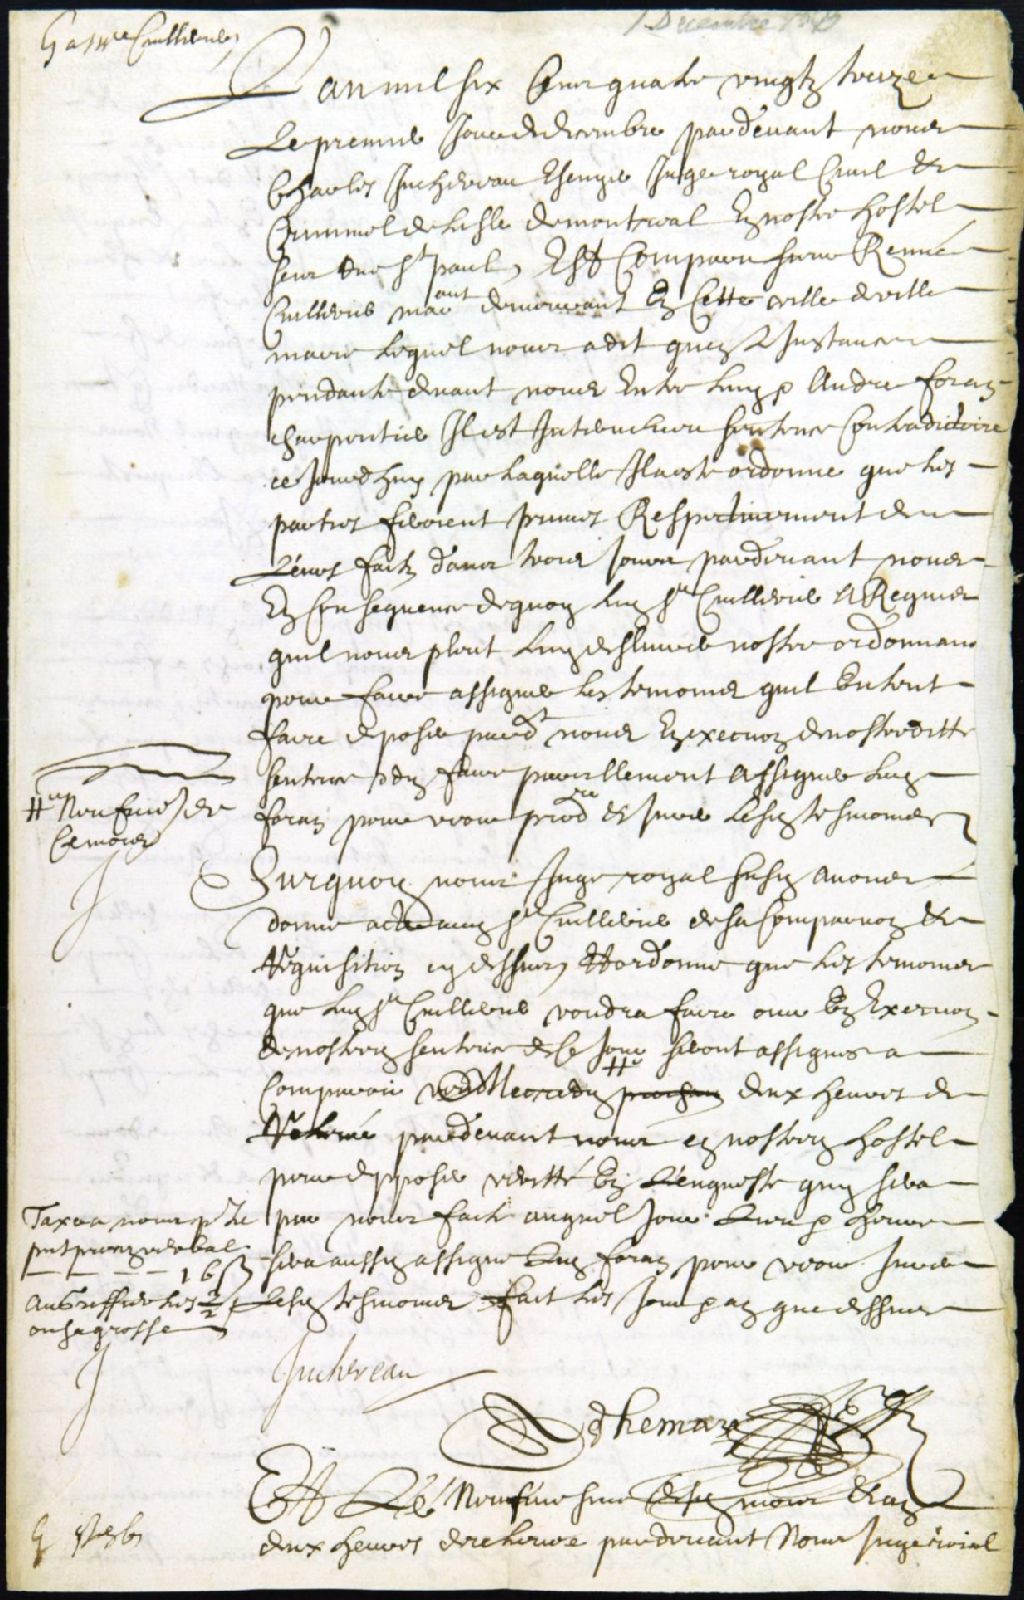 1 Decembre 1693
G a Mre Cuillerier
Lan mil six Cent quatre vingtz treize
Le premier Jour de decembre pardevant nous
Charles Juchereau Escuyer Juge royal Civil &
Criminel de Lisle de montreal En nostre hostel
seix rue St paul, Est Comparu sieur Renné
Cuillerie marant demeurant En Cette ville de ville
marie Lequel nous a dit quen L Instance
pendante devant nous Entre Luy & Andre foran
charpentier Il est Intervenue sentence Contradictoire
ce Jourdhuy par laquelle Il a este ordonne que les
parties feroient preuves Respectivement de
Leurs faitz dans trois Jours pardevant nous
En Consequence de quoy Luy Sr Cuillerie A Requis
quil nous pleut Luy deslivrer nostre ordonnance
pour faire assigner les temoins quil Entent
faire deposer pard.t nous En execuon de nostreditte
sentence & faire pareillement Assigner Luy
foran pour veoir prod.re & Jurer Lesd tesmoins
Hre Neufviesme de
Ce mois
Surquoy nous Juge royal susd avons
donne acte aud Sr Cuillerie de sa Comparuon &
Requisition cy dessus, Et ordonne que les temoins
que Luy Sr Cuillerie voudra faire ouir En Execuon
de nostred sentence de Ce Jour seront assignes a
Comparoir Mecredy prochain deux heures de
Relevé pardevant nous en nostred hostel
pour deposer veritté En Lenqueste quy sera
par nous faite auquel Jour Lieu & heure
sera aussy assigne Led foran pour veoir Jurer
Lesd tesmoins fait Les Jour & an que dessus
Taxe a nous pr Le
pnt proces verbal
16s
Au Greffier Les 2/3
ou sa grosse
Juchereau
Adhemar
Et Le Neufvie sme desd mois & an
deux heures de releve pardevant Nous Juge roial